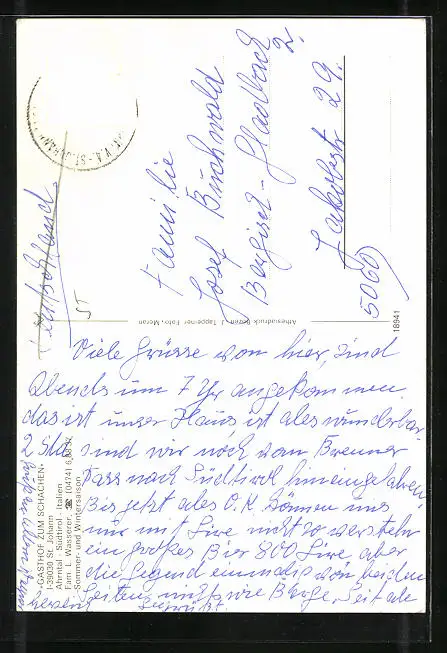 Viele Grüsse von hier, sind
Abends um 7 Uhr angekommen.
das ist unser Haus ist ales wunderbar
2 Std sind wir noch vom Brenner
Pass nach Südtirol hineingefahren
Bis jetzt ales O.K können uns
nur mit Lire nicht so verstehn
ein großes Bier 800 Lire aber
die Gegend einmalig von beiden
Seiten nichts wie Berge, Seit ale
herzlich gegrüßt.
Familie
Josef Buchwald
Bergisch-Gladbach
2.
Jakobstr 29.
5060
Deutschland
ST
-ST. JOHANN
«GASTHOF ZUM SCHACHEN»
I-39030 St. Johann
Ahrntal - Südtirol - Italien
Fam. L. Wasserer, ☎ (0474)
Sommer- und Wintersaison
Athesiadruck Bozen J. Tappeiner Foto, Meran
18941